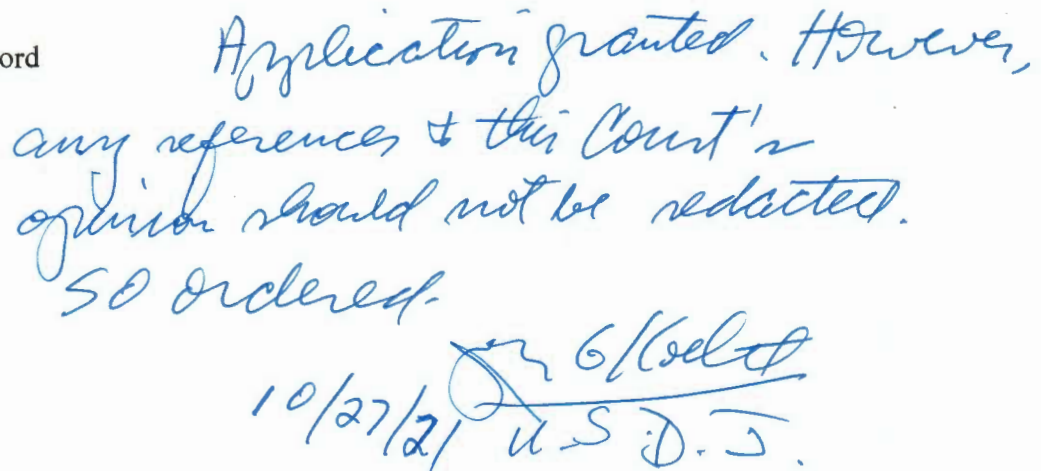 ord
Application granted. However,
any references to this Court's
opinion should not be redacted.
So ordered.
G/Koeltl
10/27/21 U.S.D.J.